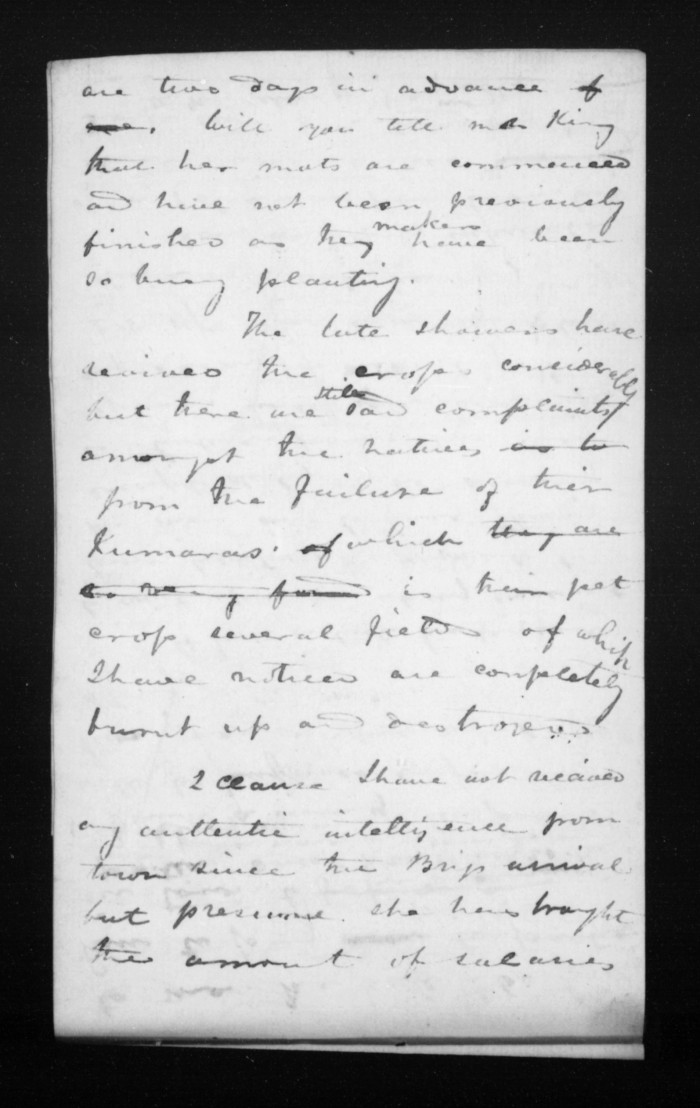 are two days in advance of
me. Will you tell Mrs King
that her mats are commenced
and have not been previously
finished as the makers have been
so busy planting.
The late showers have
revived the crops considerably
but there are still sad complaints
amongst the natives as to
from the failure of their
Kumaras. of which they are
so very fond is their pet
crop several fields of which
I have noticed are completely
burnt up and destroyed.
2 clause I have not received
any authentic intelligence from
town since the Brigs arrival
but presume she has brought
the amount of salaries